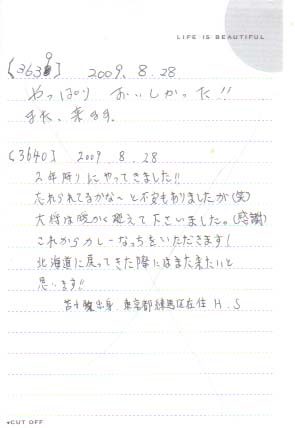 LIFE IS BEAUTIFUL
【3639】 2009. 8. 28
やっぱり おいしかった!!
また、来ます。
【3640】 2009. 8. 28
2年降りにやってきました!!
忘れられてるかな〜と不安もありましたが(笑)
大将は暖かく迎えて下さいました。(感謝)
これからカレーなっちをいただきます!
北海道に戻ってきた際にはまた来たいと
思います!!
苫小牧出身 東京都練馬区在住 H.S
CUT OFF